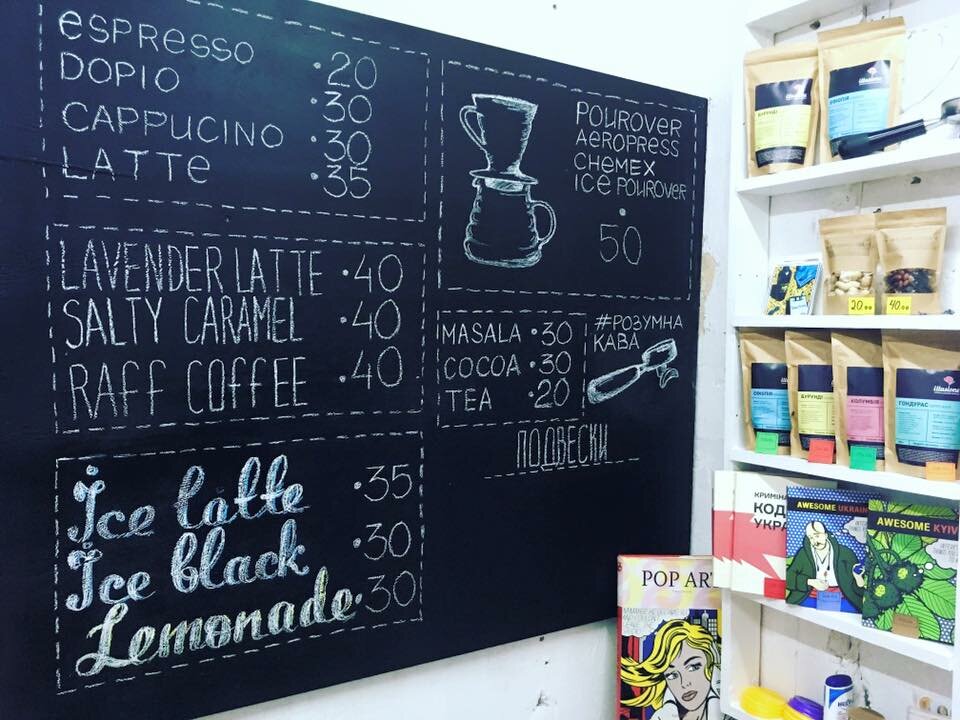 espresso ·20
DOPIO ·30
CAPPUCINO ·30
LATTe ·35
LAVENDER LATTE ·40
SALTY CARAMEL ·40
RAFF COFFEE ·40
Ice latte ·35
Ice black ·30
Lemonade ·30
POUROVER
AEROPRESS
CHEMEX
ICE POUROVER
50
MASALA ·30
COCOA ·30
TEA ·20
#РОЗУМНА
КАВА
ПОДВЕСКИ
БУРУНДІ
20.00
40.00
БУРУНДІ
КОЛУМБІЯ
illusions
ГОНДУРАС
AWESOME UKRAI
AWESOME KYIV
POP ART